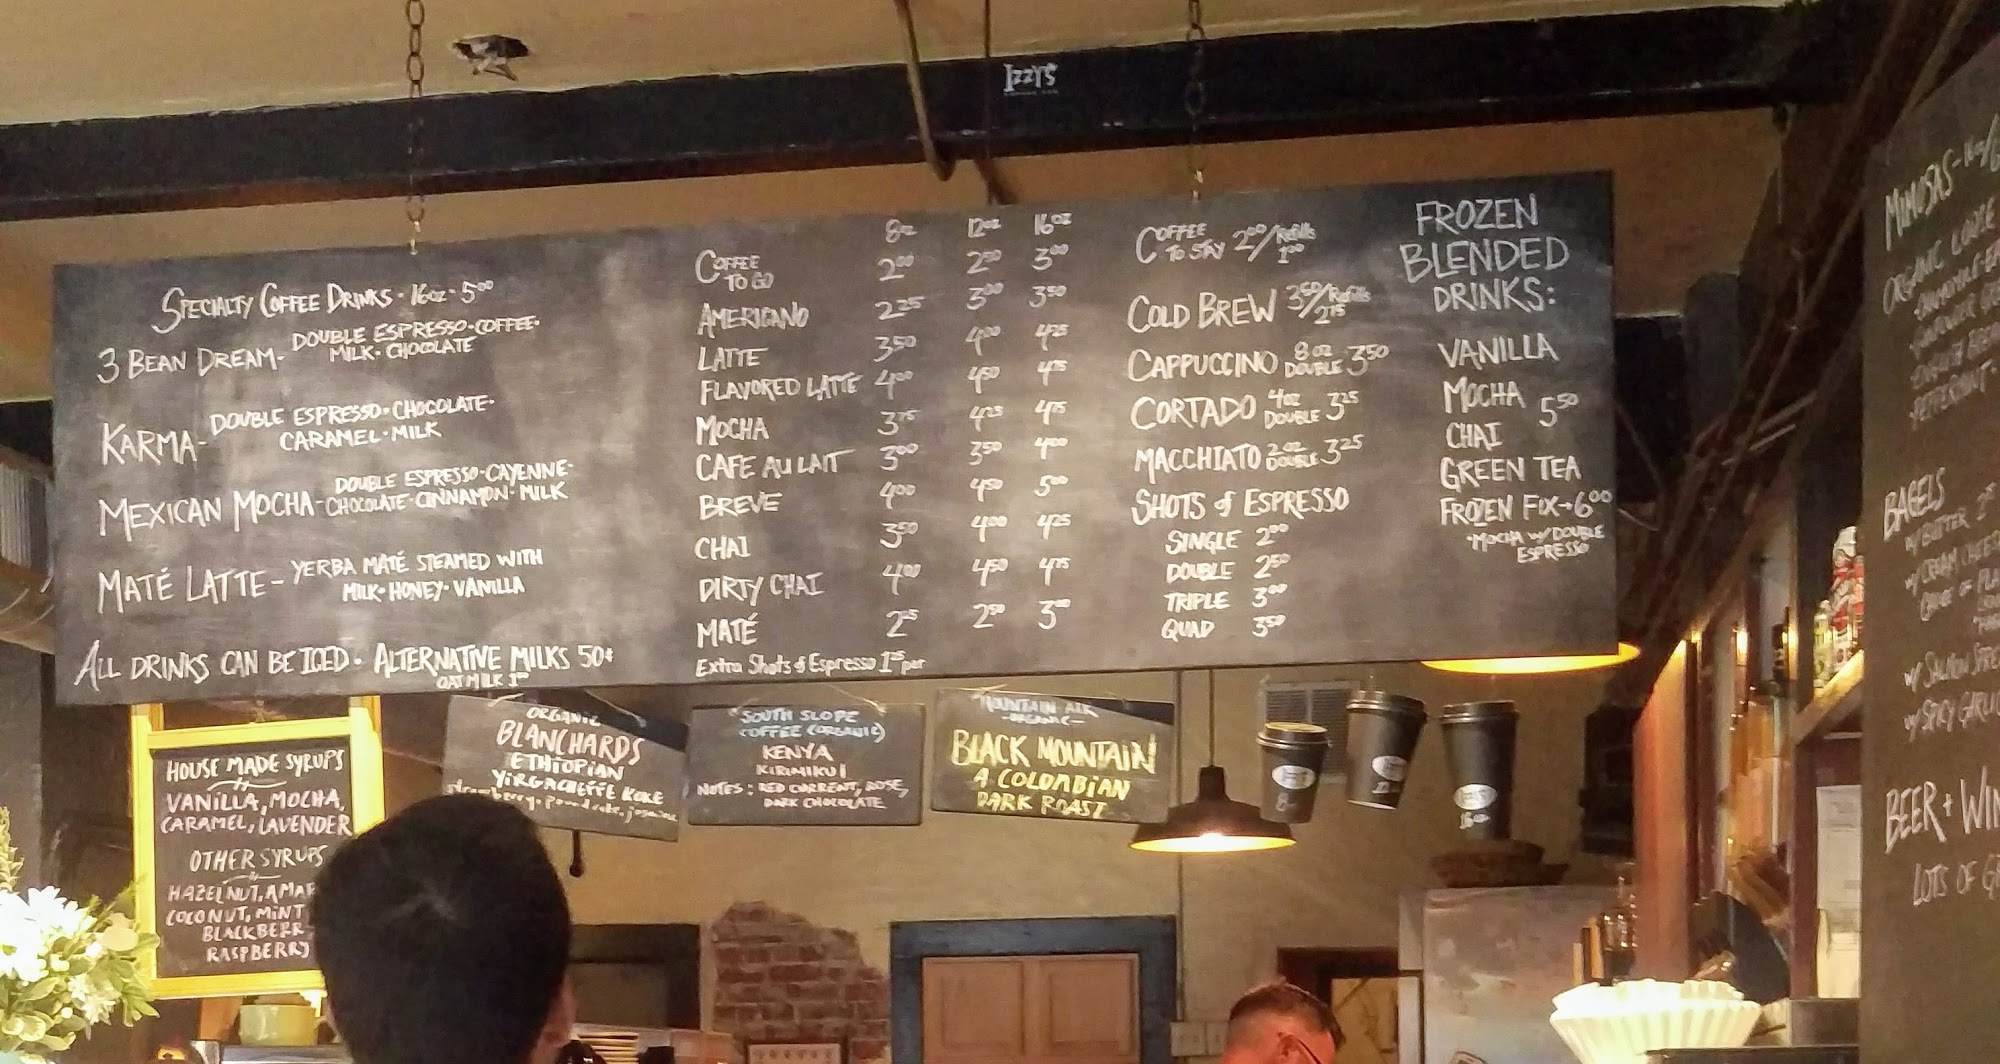 IZZY'S
SPECIALTY COFFEE DRINKS · 16oz · 5⁰⁰
3 BEAN DREAM - DOUBLE ESPRESSO · COFFEE ·
MILK · CHOCOLATE
KARMA - DOUBLE ESPRESSO · CHOCOLATE ·
CARAMEL · MILK
MEXICAN MOCHA - DOUBLE ESPRESSO · CAYENNE ·
CHOCOLATE · CINNAMON · MILK
MATÉ LATTE - YERBA MATÉ STEAMED WITH
MILK · HONEY · VANILLA
ALL DRINKS CAN BE ICED · ALTERNATIVE MILKS 50¢
OAT MILK 1⁰⁰
8oz 12oz 16oz
COFFEE TO GO 2⁰⁰ 2⁵⁰ 3⁰⁰
AMERICANO 2²⁵ 3⁰⁰ 3⁵⁰
LATTE 3⁵⁰ 4⁰⁰ 4²⁵
FLAVORED LATTE 4⁰⁰ 4⁵⁰ 4⁷⁵
MOCHA 3⁷⁵ 4²⁵ 4⁷⁵
CAFE AU LAIT 3⁰⁰ 3⁵⁰ 4⁰⁰
BREVE 4⁰⁰ 4⁵⁰ 5⁰⁰
CHAI 3⁵⁰ 4⁰⁰ 4²⁵
DIRTY CHAI 4⁰⁰ 4⁵⁰ 4⁷⁵
MATÉ 2²⁵ 2⁵⁰ 3⁰⁰
Extra Shots of Espresso 1²⁵ per
COFFEE TO STAY 2⁰⁰/Refills 1⁰⁰
COLD BREW 3⁵⁰/Refills 2⁷⁵
CAPPUCCINO 8oz DOUBLE 3⁵⁰
CORTADO 4oz DOUBLE 3²⁵
MACCHIATO 2oz DOUBLE 3²⁵
SHOTS of ESPRESSO
SINGLE 2⁰⁰
DOUBLE 2⁵⁰
TRIPLE 3⁰⁰
QUAD 3⁵⁰
FROZEN
BLENDED
DRINKS:
VANILLA
MOCHA 5⁵⁰
CHAI
GREEN TEA
FROZEN FIX → 6⁰⁰
*MOCHA w/ DOUBLE
ESPRESSO
HOUSE MADE SYRUPS
VANILLA, MOCHA,
CARAMEL, LAVENDER
OTHER SYRUPS
HAZELNUT,
COCONUT, MINT
BLACKBERR
RASPBERRY
ORGANIC
BLANCHARDS
ETHIOPIAN
YIRGACHEFFE KOKE
SOUTH SLOPE
COFFEE (ORGANIC)
KENYA
KIRIMIKUI
NOTES: RED CURRENT, ROSE,
DARK CHOCOLATE
MOUNTAIN AIR
-ORGANIC-
BLACK MOUNTAIN
A COLOMBIAN
DARK ROAST
MIMOSAS
ORGANIC LOOSE
PEPPERMINT
BAGELS
w/ BUTTER
w/ CREAM CHEESE
w/ SALMON SPRE
w/ SPICY GARLIC
BEER + WIN
LOTS OF